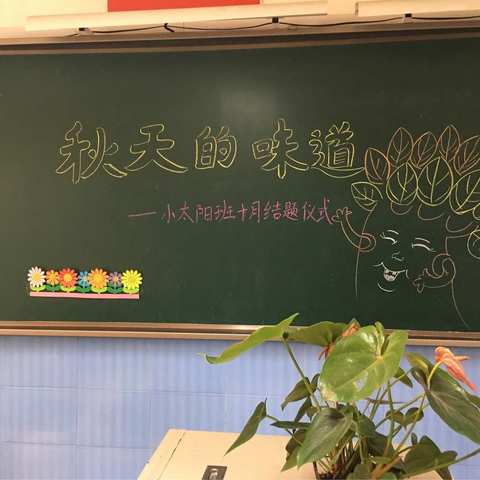 秋天的味道
——小太阳班十月结题仪式